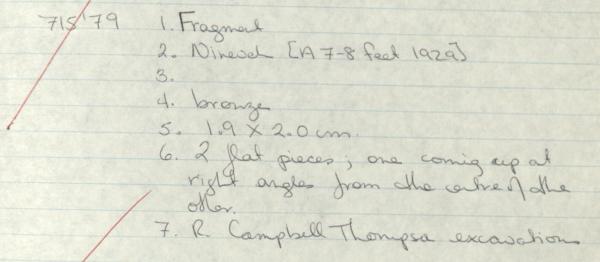 715'79 1. Fragment
2. Nineveh [A 7-8 feet 1929]
3.
4. bronze
5. 1.9 X 2.0 cm.
6. 2 flat pieces; one coming up at
right angles from the centre of the
other.
7. R. Campbell Thompson excavations